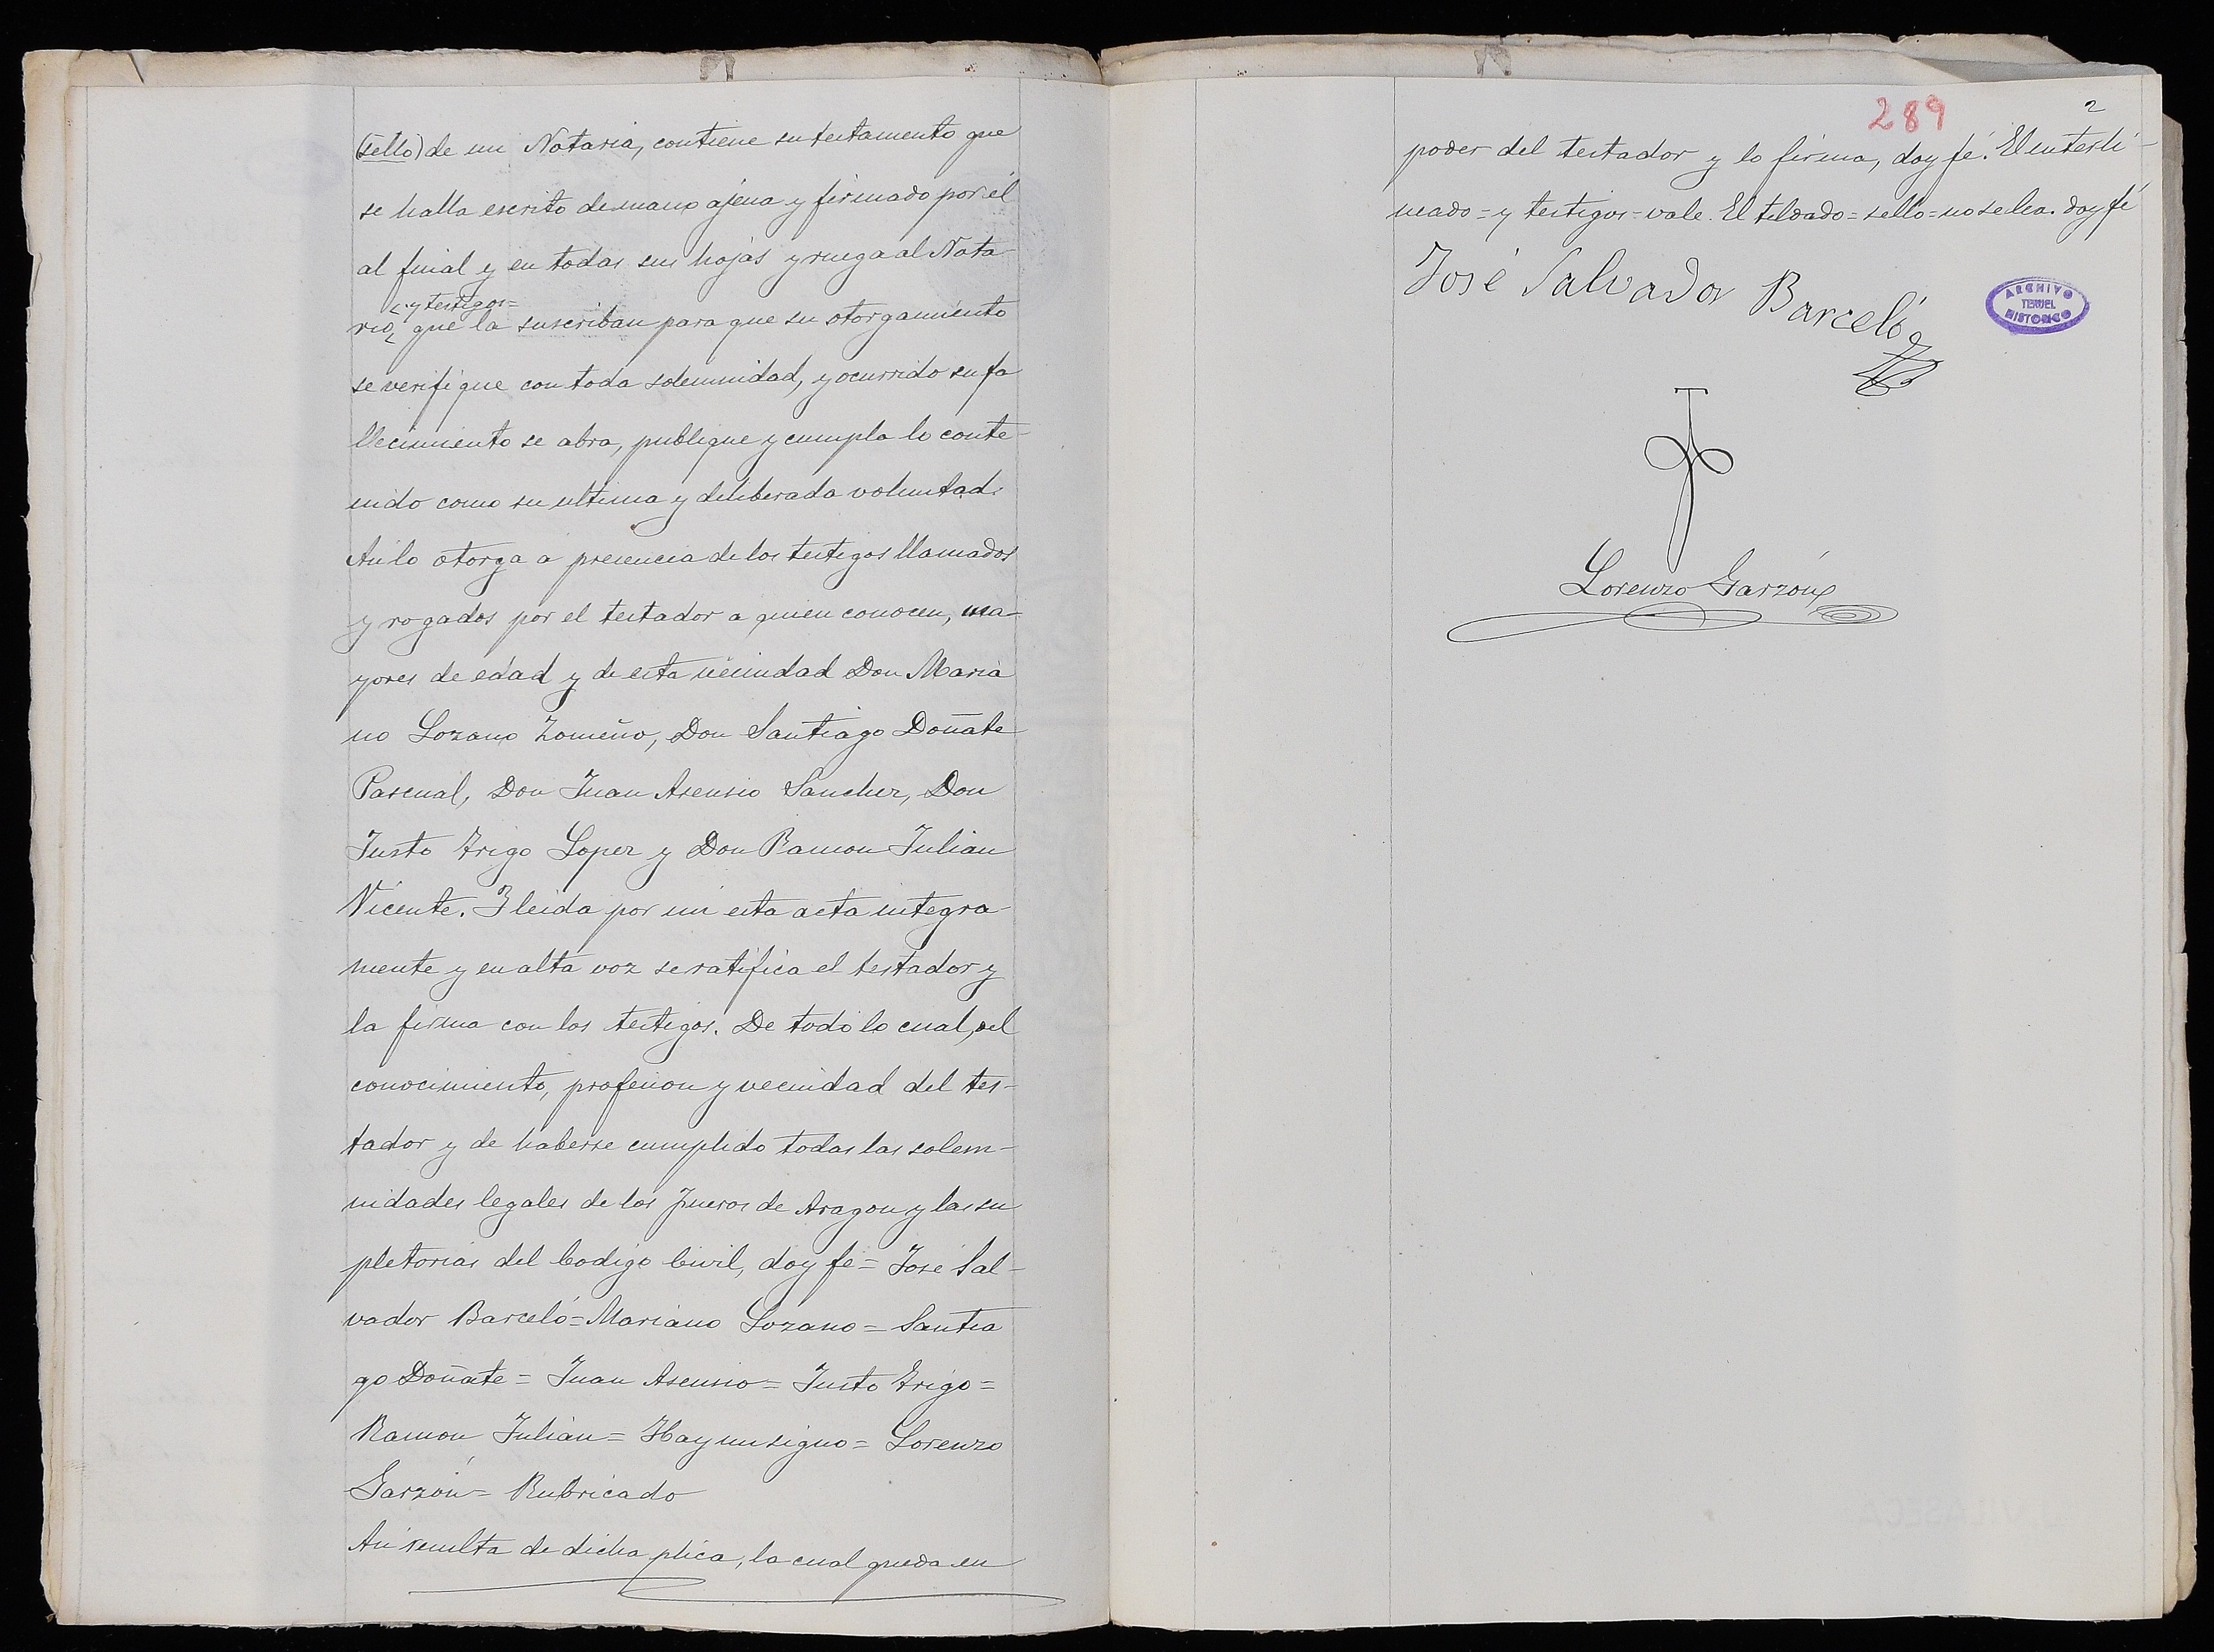 (sello) de mi Notaria, contiene su testamento que
se halla escrito de mano ajena y firmado por él
al final y en todas sus hojas y ruega al Nota-
=y testigos=
rio, que la suscriban para que su otorgamiento
se verifique con toda solemnidad, y ocurrido su fa
llecimiento se abra, publique y cumpla lo conte-
nido como su ultima y deliberada voluntad.
Asi lo otorga a presencia de los testigos llamados
y rogados por el testador a quien conocen, ma-
yores de edad y de esta vecindad Don Maria
no Lozano Zomeño, Don Santiago Doñate
Pascual, Don Juan Asensio Sanchez, Don
Justo Trigo Lopez y Don Ramon Julian
Vicente. I leida por mi esta acta integra
mente y en alta voz se ratifica el testador y
la firma con los testigos. De todo lo cual, del
conocimiento, profesion y vecindad del tes-
tador y de haberse cumplido todas las solem-
nidades legales de los Fueros de Aragon y las su
pletorias del Codigo Civil, doy fe = José Sal-
vador Barceló = Mariano Lozano = Santia
go Doñate = Juan Asensio = Justo Trigo =
Ramon Julian = Hay un signo = Lorenzo
Garzón = Rubricado
Asi resulta de dicha plica, la cual queda en
289
2
poder del testador y lo firma, doy fé. El interli-
neado = y testigos = vale. El tildado = sello = no se lea. doy fé
José Salvador Barceló
ARCHIVO
TERUEL
HISTORICO
Lorenzo Garzón